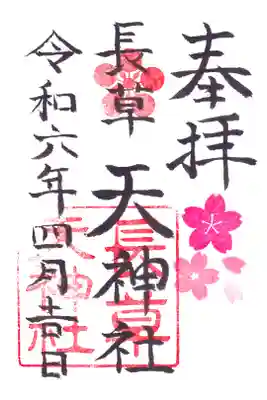 奉拝
長草 天神社
令和六年四月 日
長草
天神社